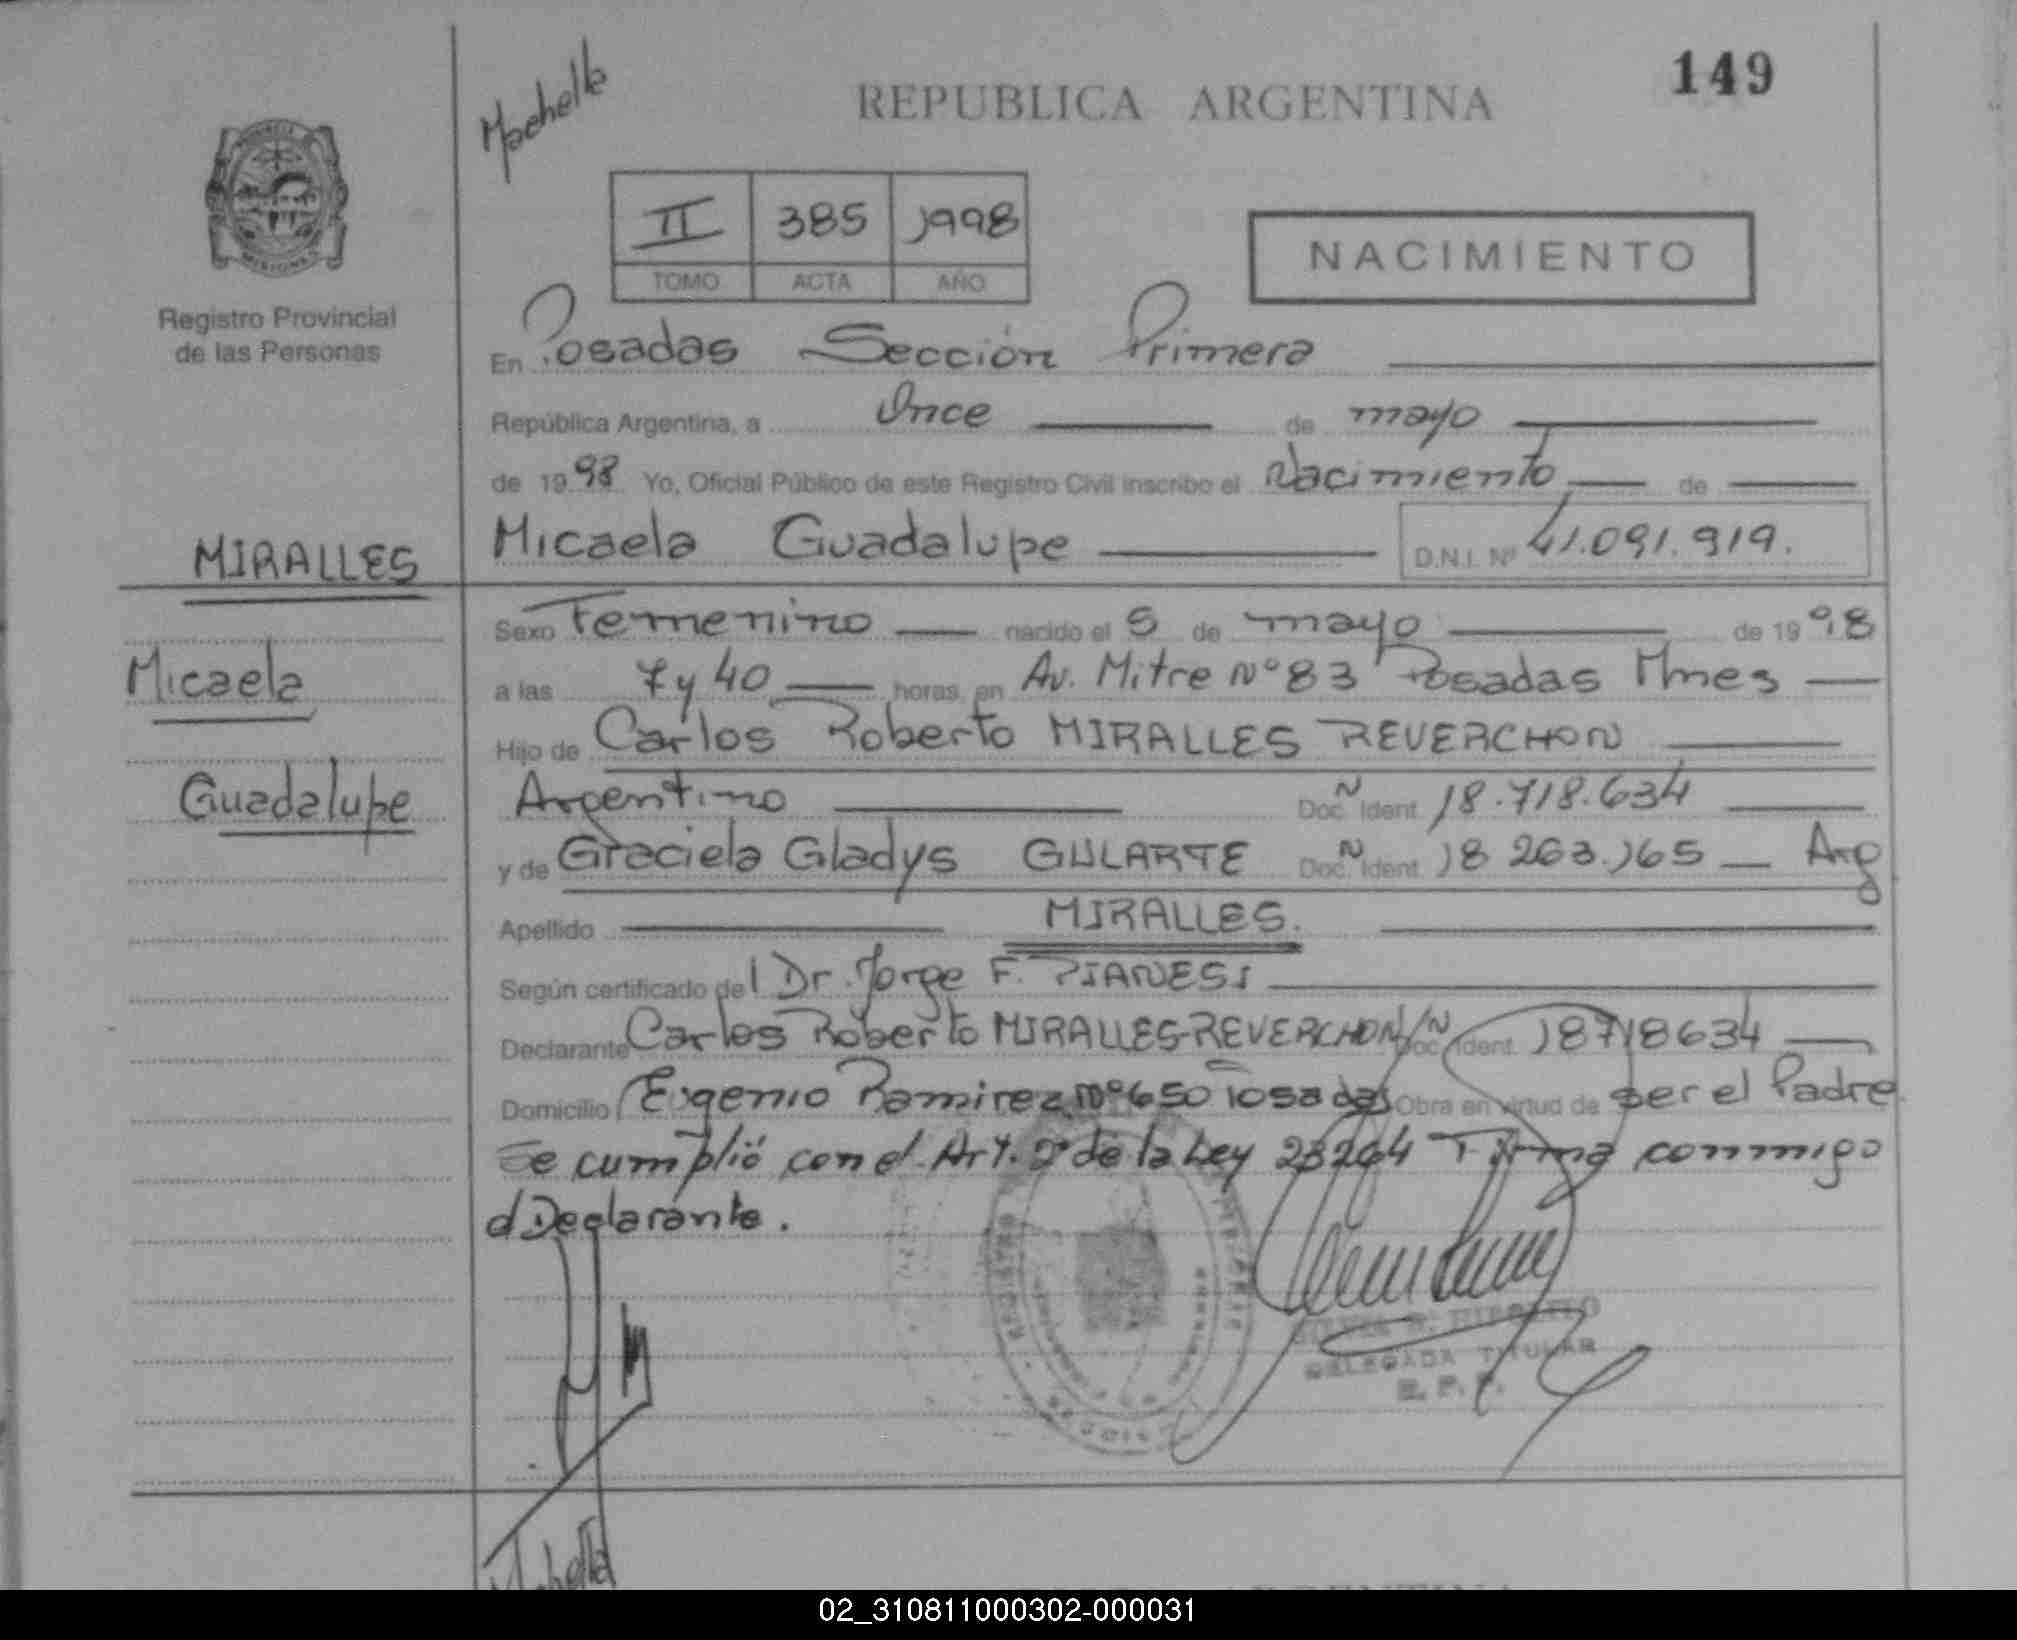 149
Machella
REPUBLICA ARGENTINA
II 385 1998
TOMO ACTA AÑO
NACIMIENTO
MISIONES
Registro Provincial
de las Personas
En Posadas Sección Primera
República Argentina, a Once de mayo
de 1998 Yo, Oficial Público de este Registro Civil inscribo el Nacimiento de
MIRALLES
Micaela Guadalupe D.N.I. Nº 41.091.919.
Sexo Femenino nacido el 5 de mayo de 1998
Micaela
a las 7 y 40 horas, en Av. Mitre Nº 83 Posadas Mnes
Hijo de Carlos Roberto MIRALLES REVERCHON
Guadalupe
Argentino Doc. N Ident. 18.718.634
y de Graciela Gladys GULARTE Doc. N Ident. 18 263.165 Arg
Apellido MIRALLES.
Según certificado del Dr. Jorge F. PIANESI
Declarante Carlos Roberto MIRALLES-REVERCHON Doc. N Ident. 18718634
Domicilio Eugenio Ramirez Nº 650 Posadas Obra en virtud de ser el Padre.
Se cumplió con el Art. 2º de la Ley 23264 Firma conmigo
el Declarante.
DELEGADA TITULAR
R. P. P.
02_310811000302-000031